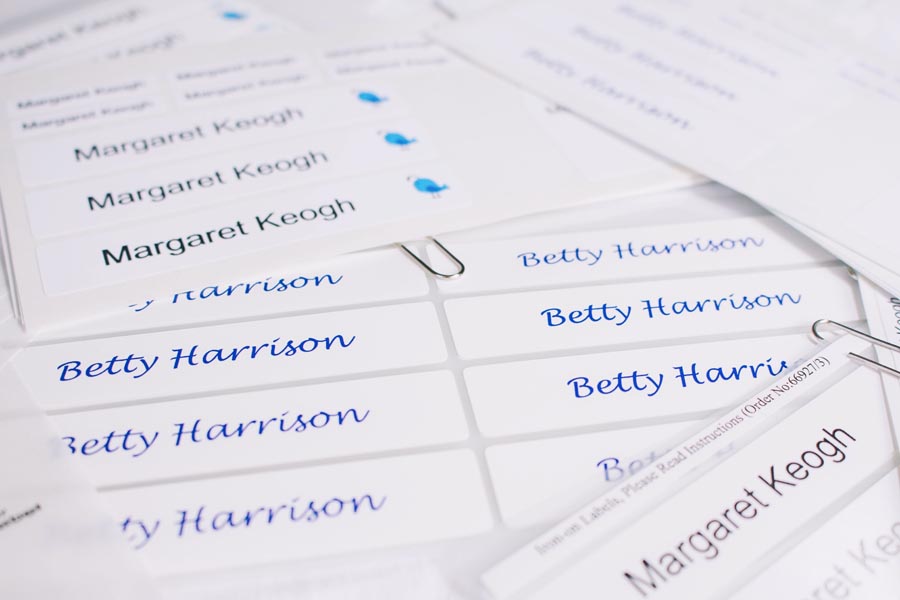 Margaret Keogh
Margaret Keogh
Margaret Keogh
Margaret Keogh
Margaret Keogh
Margaret Keogh
Margaret Keogh
Margaret Keogh
Margaret Keogh
Betty Harrison
Betty Harrison
Betty Harrison
Harrison
Betty Harrison
Betty Harrison
Betty Harrison
Betty Harrison
Betty
Harrison
Iron-on Labels, Please Read Instructions (Order No:66927/3)
Margaret Keogh